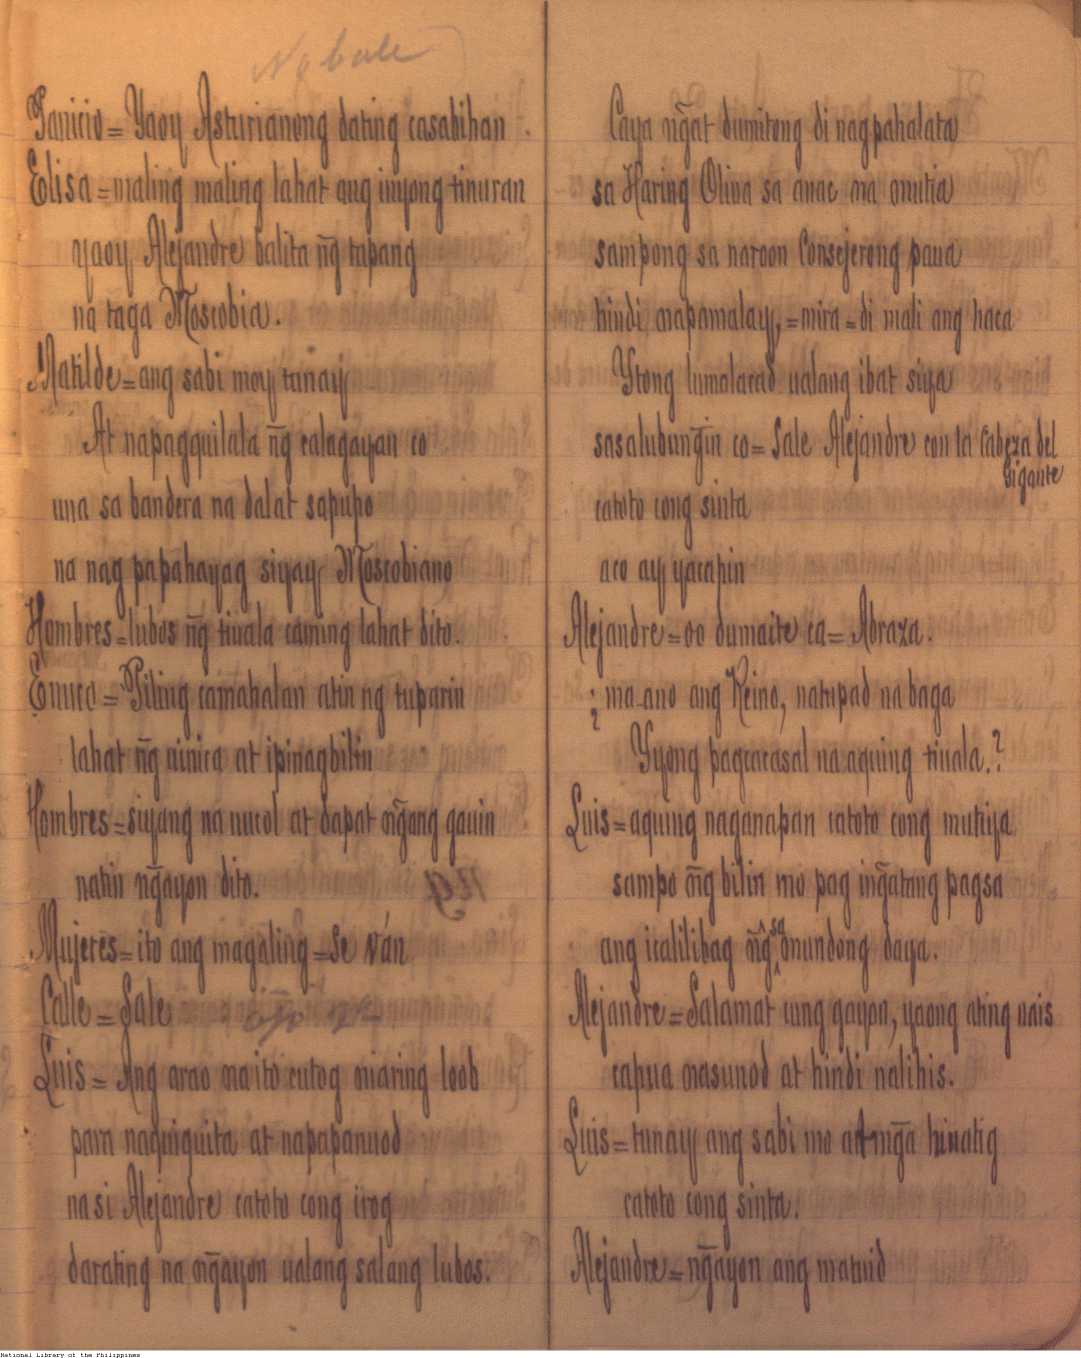 No bale
Janicio = Yaoy Asturianong dating casabihan
Elisa = maling maling lahat ang inyong tinuran
yaoy Alejandre balita ng̃ tapang
na taga Moscobia.
Matilde = ang sabi moy tunay
At napagquilala ng̃ calagayan co
una sa bandera na dalat sapupo
na nag papahayag siyay Moscobiano
Hombres = lubos ng̃ tiuala caming lahat dito.
Enuco = Piling camahalan atin ng tuparin
lahat ng̃ uinica at ipinagbilin
Hombres = siyang na nucol at dapat mg̃ang gauin
natin ng̃ayon dito.
Mujeres = ito ang magaling = Se ván
Calle = Sale
Luis = Ang arao ma ito cutog niaring loob
para naquiquita at napapanuod
na si Alejandre catoto cong irog
darating na ng̃ayon ualang salang lubos.
Caya ng̃at dumitong di nagpahalata
sa Haring Oliva sa anac na mutia
sampong sa naroon Consejerong paua
hindi napamalay, = mira = di mali ang haca
Ytong lumalacad ualang ibat siya
sasalubung̃in co = Sale Alejandre con la Cabeza del
Gigante
catoto cong sinta
aco ay yacapin
Alejandre = oo dumaite ca = Abraza.
¿ ma-ano ang Reino, natupad na baga
Yyong pagcacasal na aquing tiuala.?
Luis = aquing naganapan catoto cong mutiya
sampo mg̃ bilin mo pag ing̃atang pagsa
ang icalilibag ng̃ sa mundong daya.
Alejandre = Salamat cung gayon, yaong ating nais
capua masunod at hindi nalihis.
Luis = tunay ang sabi mo at mg̃a hinatig
catoto cong sinta.
Alejandre = ng̃ayon ang matuid
National Library of the Philippines